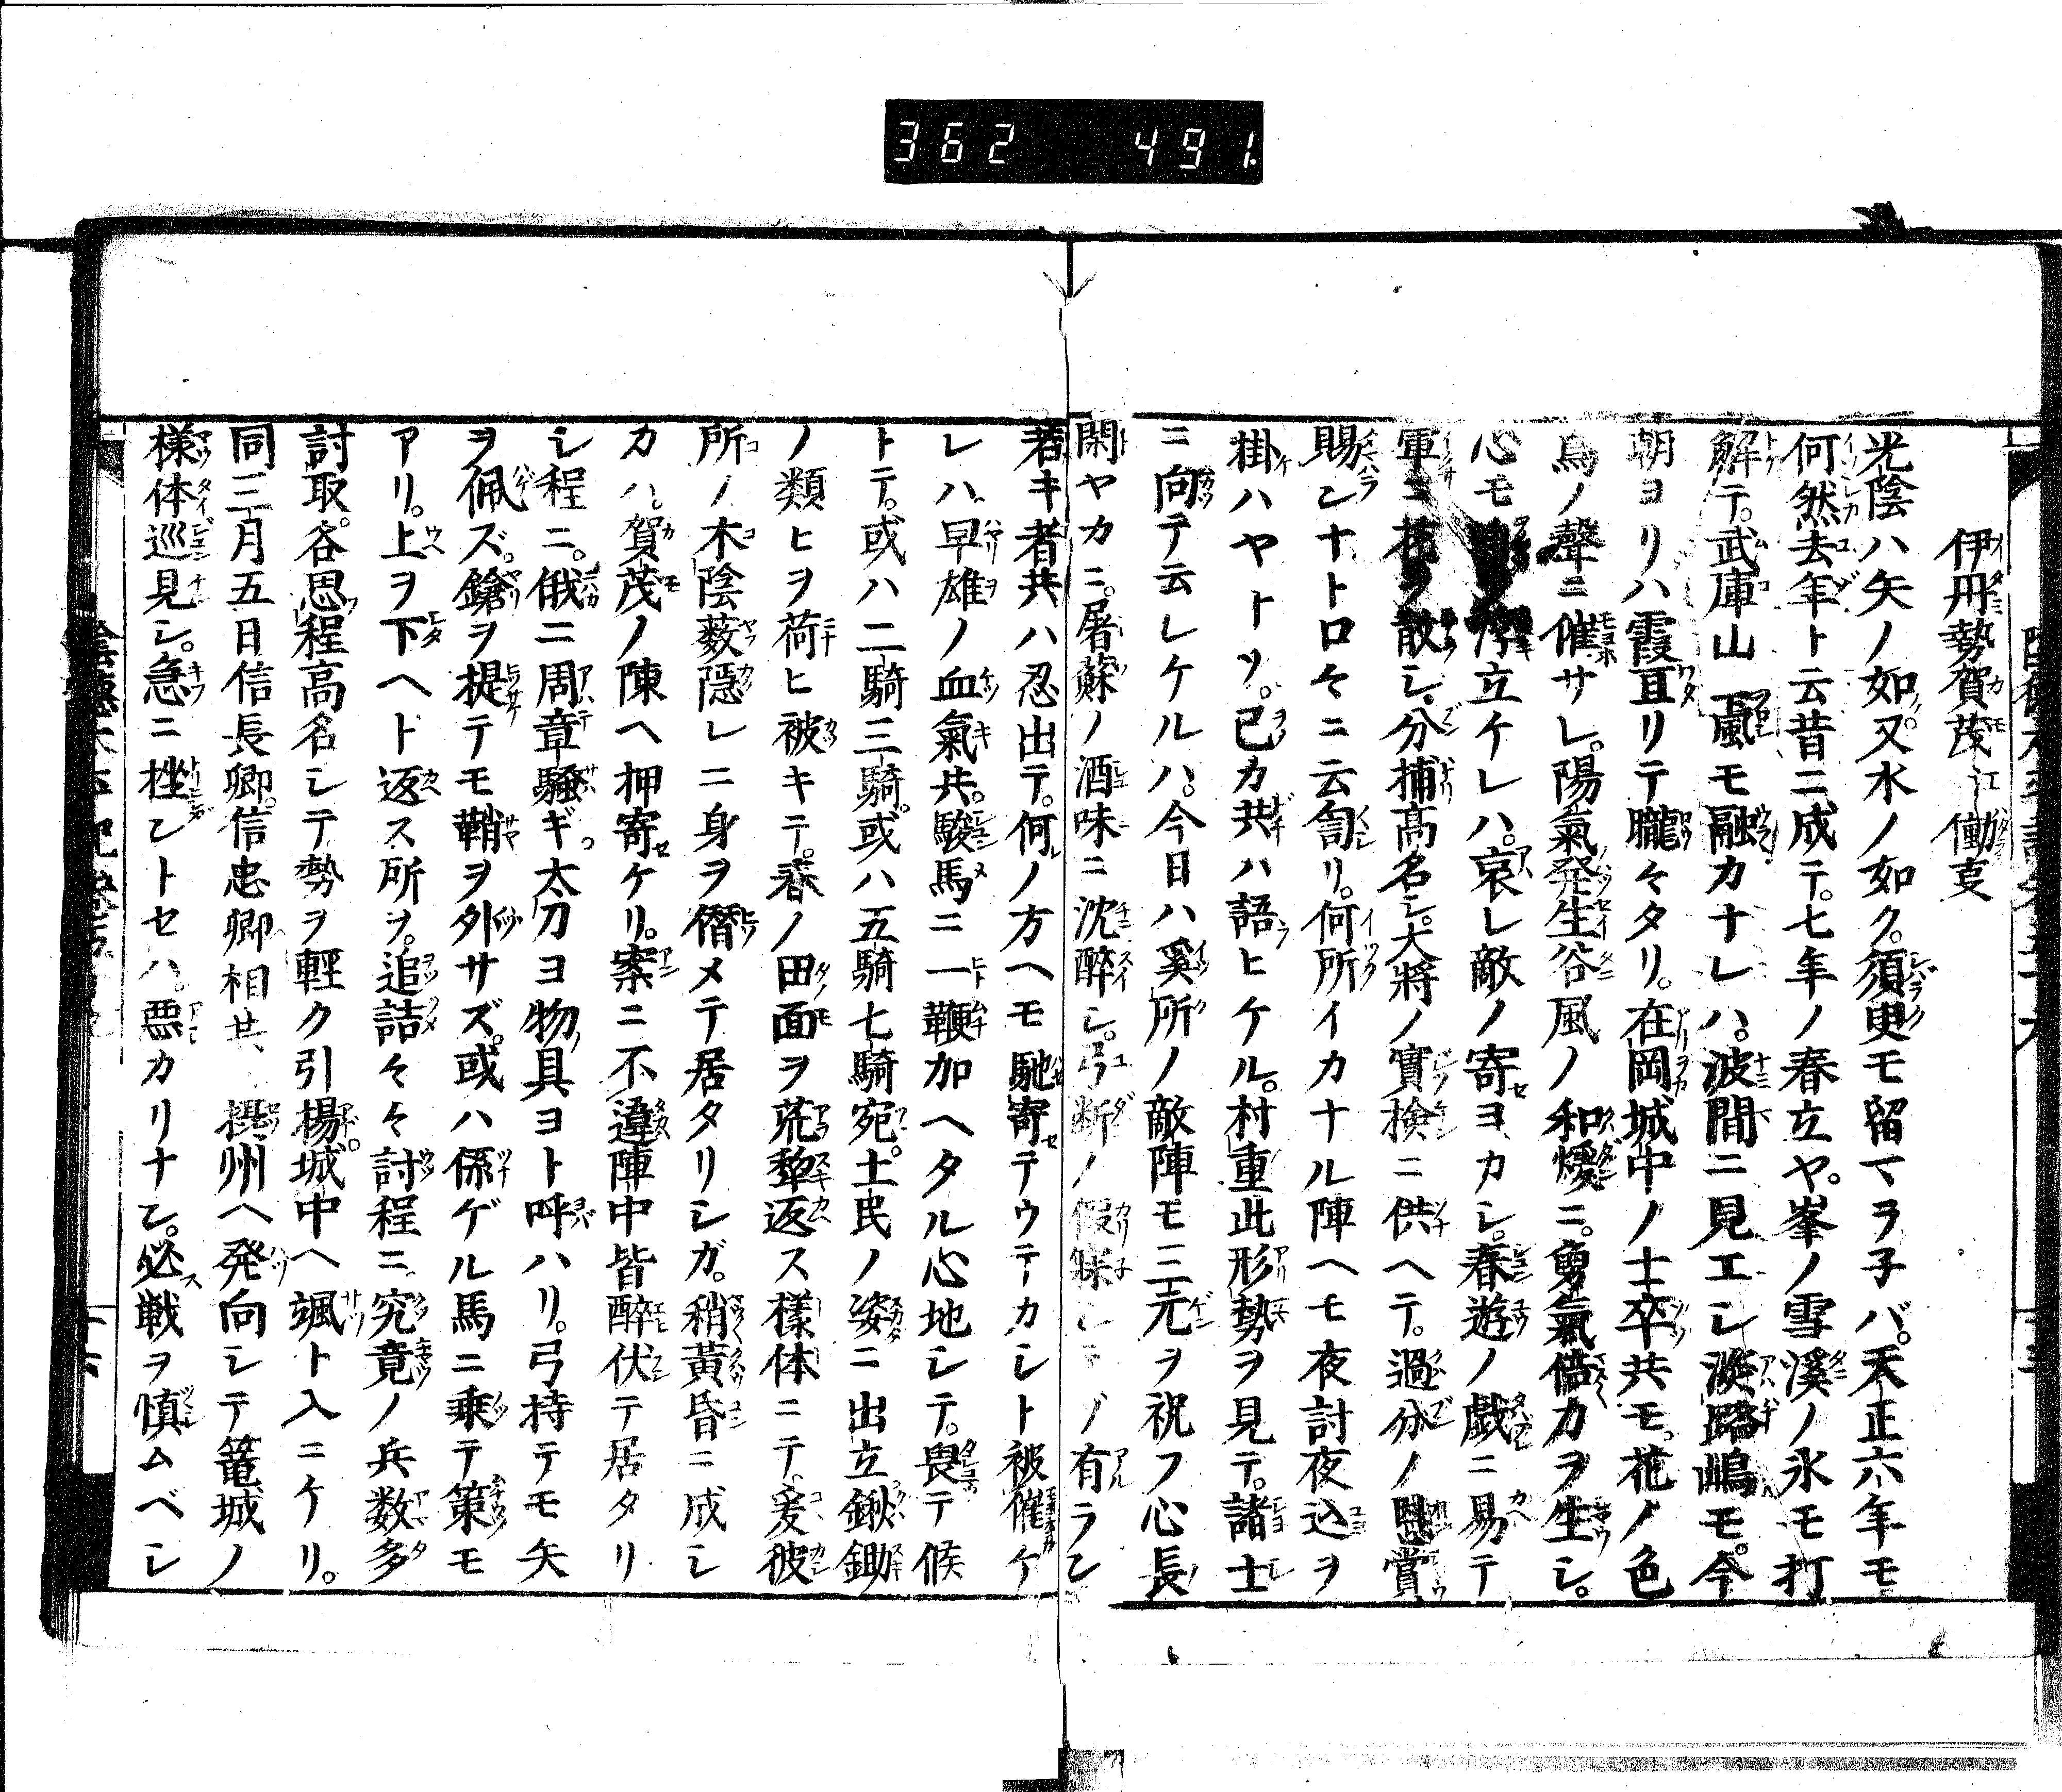 362 491
伊丹勢賀茂江働支
光陰ハ矢ノ如又水ノ如ク。須臾モ留マラ子バ。天正六年モ
何然去年ト云昔ニ成テ。七年ノ春立ヤ。峯ノ雪溪ノ氷モ打
解テ。武庫山風モ融カナレハ。波間ニ見エシ淡路嶋モ。今
朝ヨリハ霞亘リテ朧々タリ。在岡城中ノ士卒共モ。花ノ色
鳥ノ聲ニ催サレ。陽氣発生谷風ノ和煖ニ。勇氣倍力ヲ生シ。
心モ立ケレハ。哀レ敵ノ寄ヨカシ。春遊ノ戯ニ易テ
軍ニ花ヲ散シ。分捕高名シ。大将ノ實検ニ供ヘテ。過分ノ恩賞
賜ンナトロ々ニ云訇リ。何所イカナル陣ヘモ夜討夜込ヲ
掛ハヤトソ。己カ共ハ語ヒケル。村重此形勢ヲ見テ。諸士
ニ向テ云レケルハ。今日ハ奚所ノ敵陣モ三元ヲ祝フ心長
閑ヤカニ。屠蘇ノ酒味ニ沈醉シ。弓断ノ假寐シテノ有ラン
若キ者共ハ忍出テ。何ノ方ヘモ馳寄テウテカシト被催ケ
レハ。早雄ノ血氣共。駿馬ニ一鞭加ヘタル心地シテ。畏テ候
トテ。或ハ二騎三騎。或ハ五騎七騎宛。土民ノ姿ニ出立鍬鋤
ノ類ヒヲ荷ヒ被キテ。春ノ田面ヲ荒犂返ス様体ニテ。爰彼
所ノ木陰薮隠レニ身ヲ僭メテ居タリシガ。稍黄昏ニ成シ
カハ。賀茂ノ陳ヘ押寄ケリ。案ニ不違陣中皆醉伏テ居タリ
シ程ニ。俄ニ周章騒ギ。太刀ヨ物具ヨト呼ハリ。弓持テモ矢
ヲ佩ズ。鎗ヲ提テモ鞘ヲ外サズ。或ハ係ゲル馬ニ乗テ策モ
アリ。上ヲ下ヘト返ス所ヲ。追詰々々討程ニ。究竟ノ兵数多
討取。各思程高名シテ勢ヲ軽ク引揚。城中ヘ颯ト入ニケリ。
同三月五日信長卿。信忠卿相共、摂州ヘ発向シテ篭城ノ
様体巡見シ。急ニ挫ントセハ。悪カリナン。必戦ヲ慎ムベシ